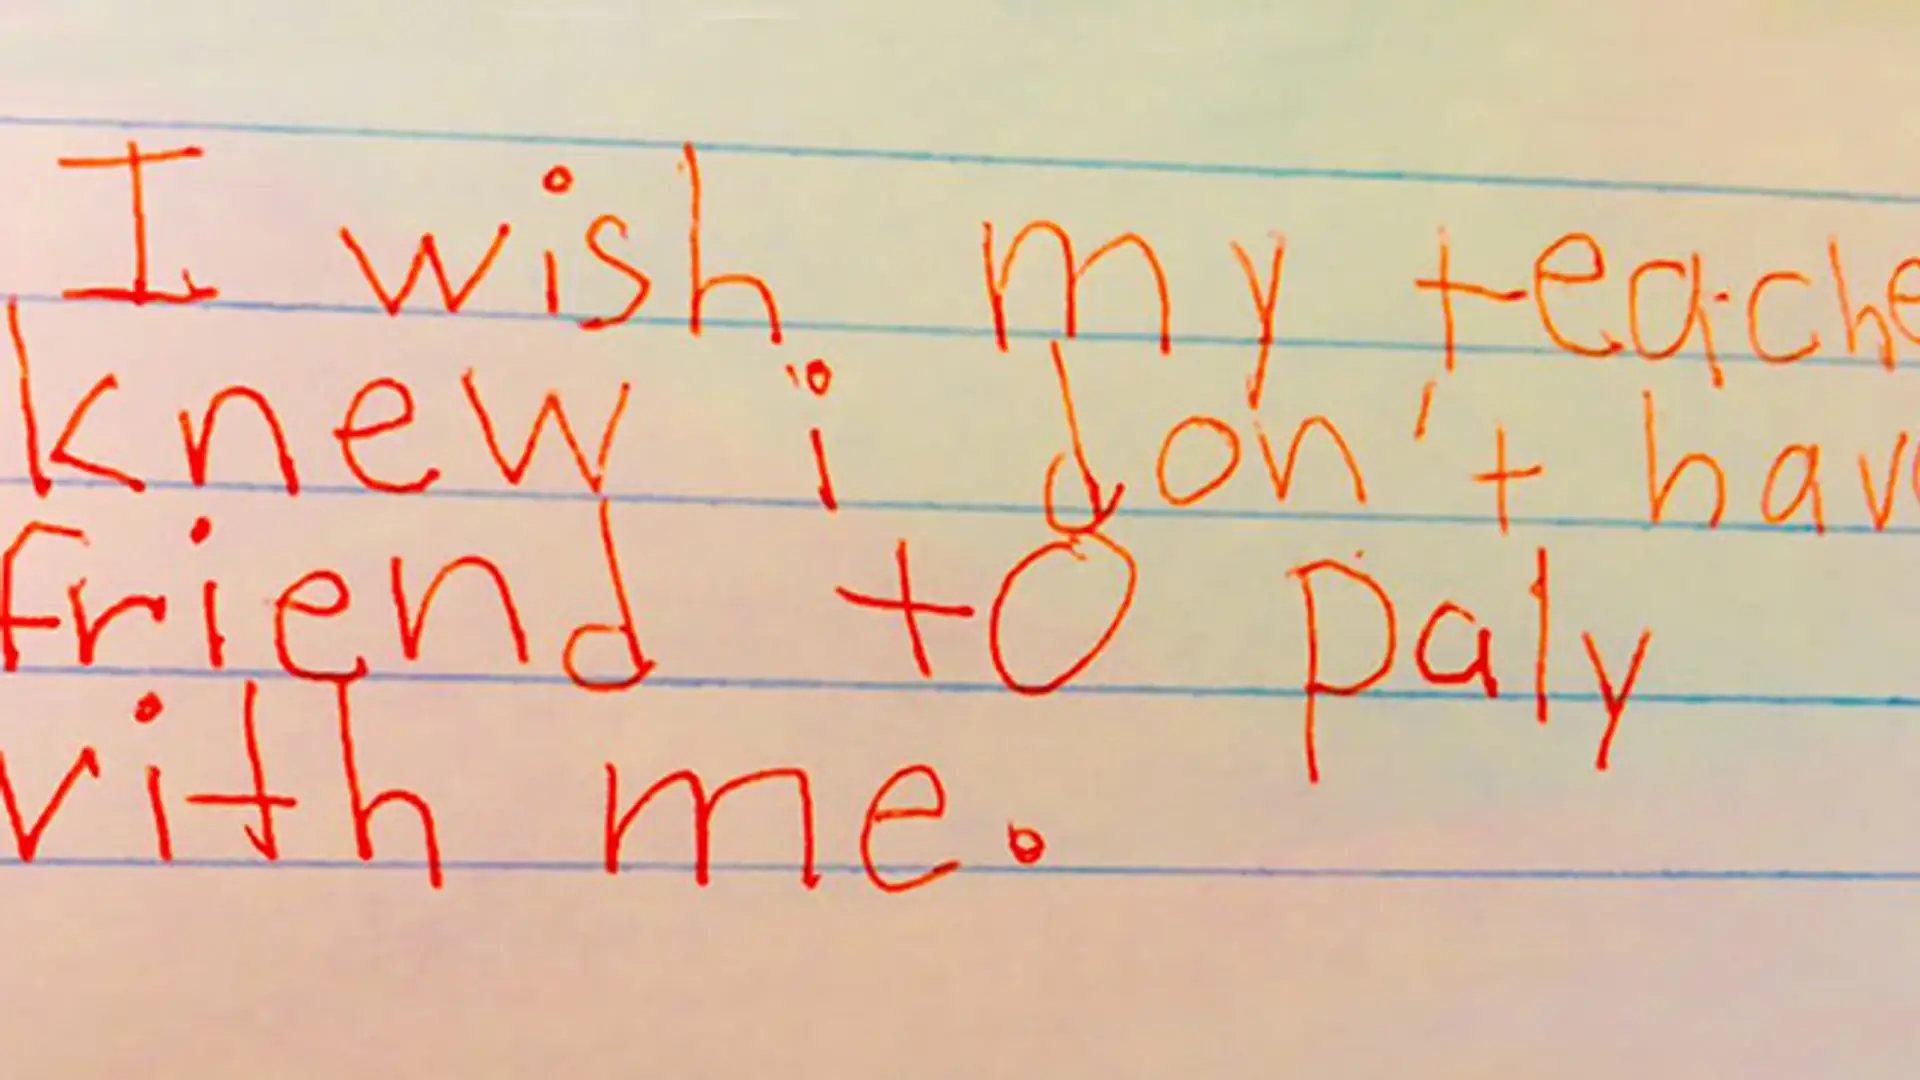 I wish my teache
knew i don't hav
friend to paly
with me.